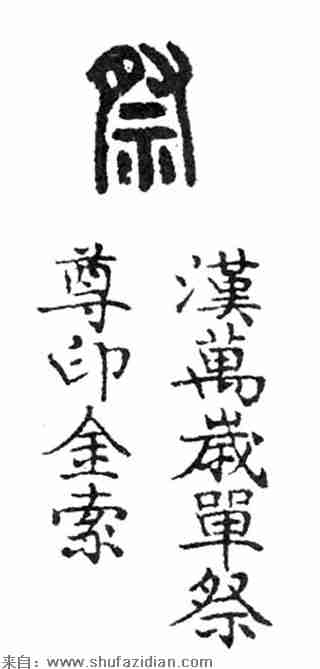 祭
漢萬歲單祭
尊印金索
来自：www.shufazidian.com